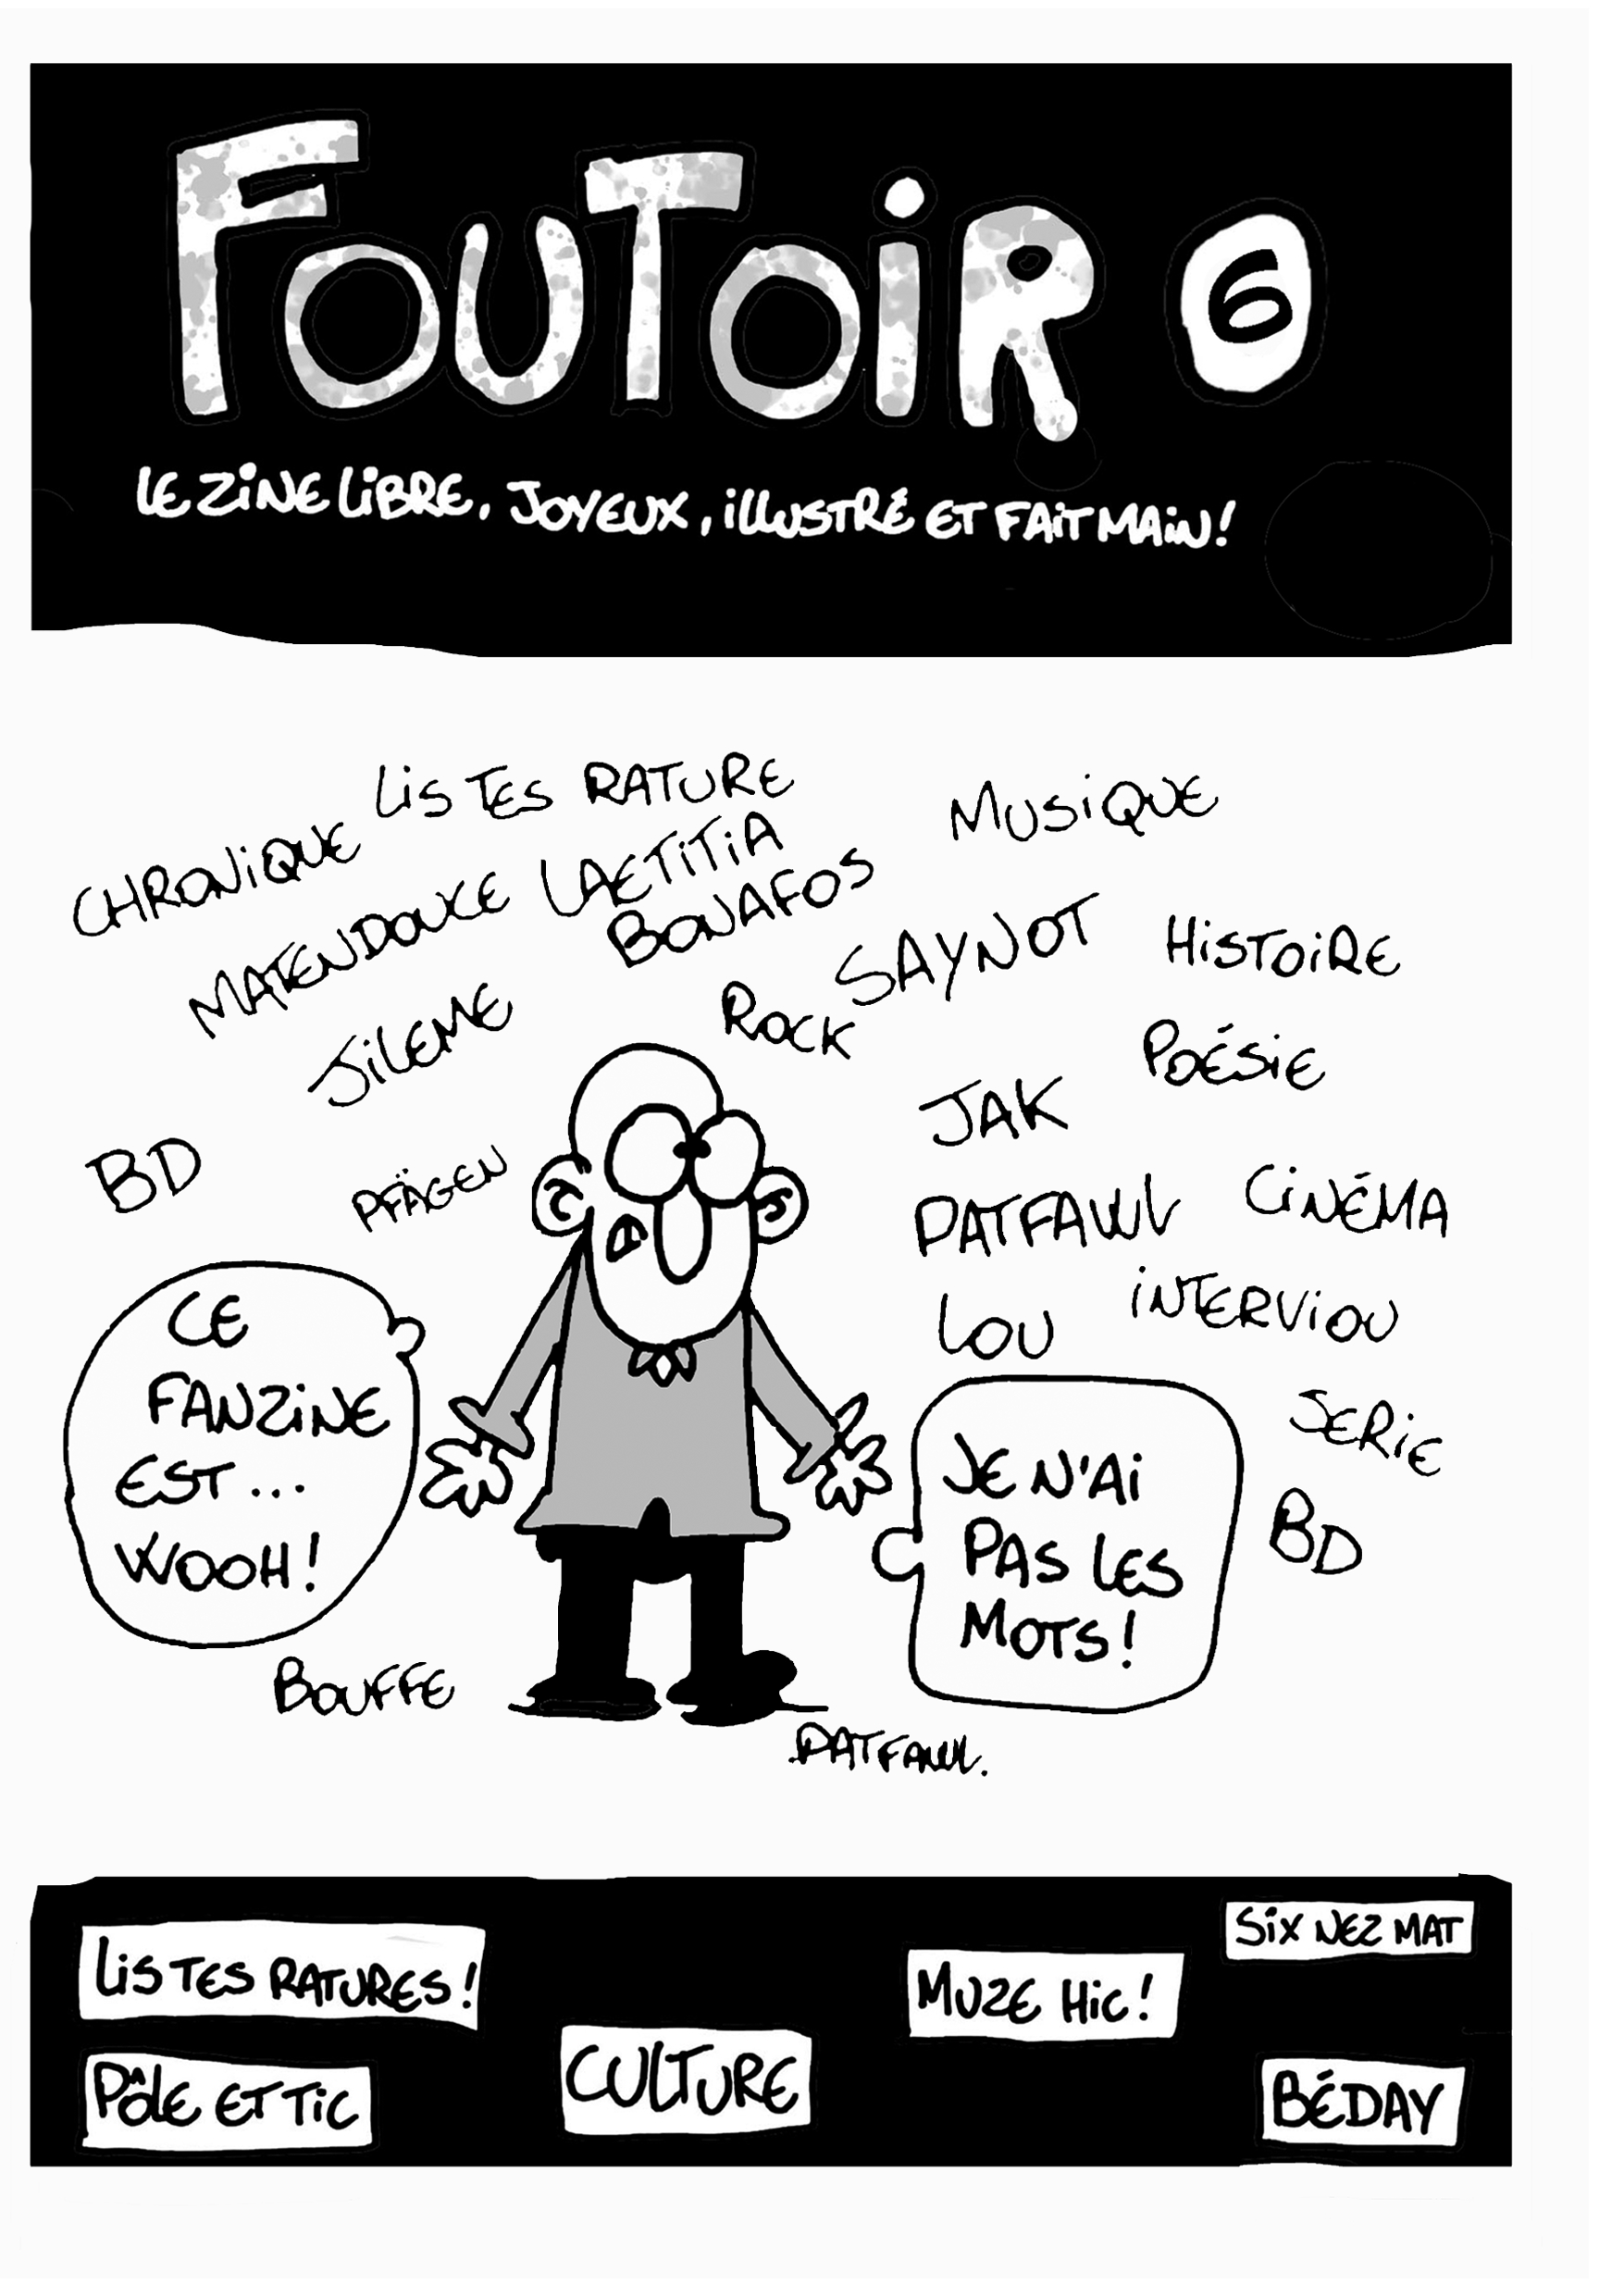 FOUTOIR 6
LE ZINE LIBRE, JOYEUX, ILLUSTRÉ ET FAIT MAIN!
LIS TES RATURE
MUSIQUE
CHRONIQUE
LAETITIA
BONAFOS
MATENDOUCE
SAYNOT
HISTOIRE
JILEME
ROCK
POÉSIE
JAK
BD
PFÄGEN
PATFAWL
CINÉMA
INTERVIOU
LOU
CE
FANZINE
EST...
WOOH!
SERIE
JE N'AI
PAS LES
MOTS!
BD
BOUFFE
PATFAWL.
SIX NEZ MAT
LIS TES RATURES!
MUZE HIC!
CULTURE
PÔLE ET TIC
BÉDAY